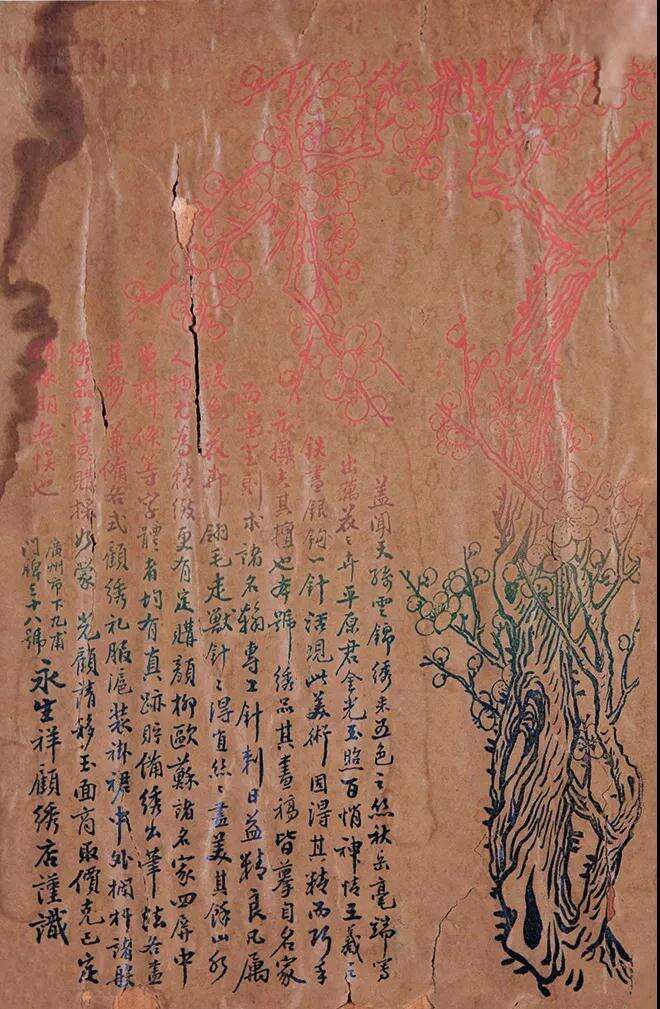 蓋聞天孫雲錦綉来五色之絲秋岳毫端寫
出萬花之卉平原君金光玉照百悄神情王羲之
鉄畫銀鈎一針活現此美術因得其精而巧手
亦擅也本號綉品其畫稿皆摹自名家
而墨宝則求諸名翰專工針刺日益精良凡屬
花御翎毛走獸針之得直絲之盡美其餘山水
人物尤為精緻更有定購顔柳歐蘇諸名家四屏中
堂聯條等字體者均有真跡貯備綉出筆法各盡
其妙兼備各式顧綉礼服滬装衫裙中外搁料諸般
綉品任意購採如蒙光顧請移玉面商取價克己定
期無悮也
廣州市下九甫
門牌三十八號
永生祥顧綉店謹識